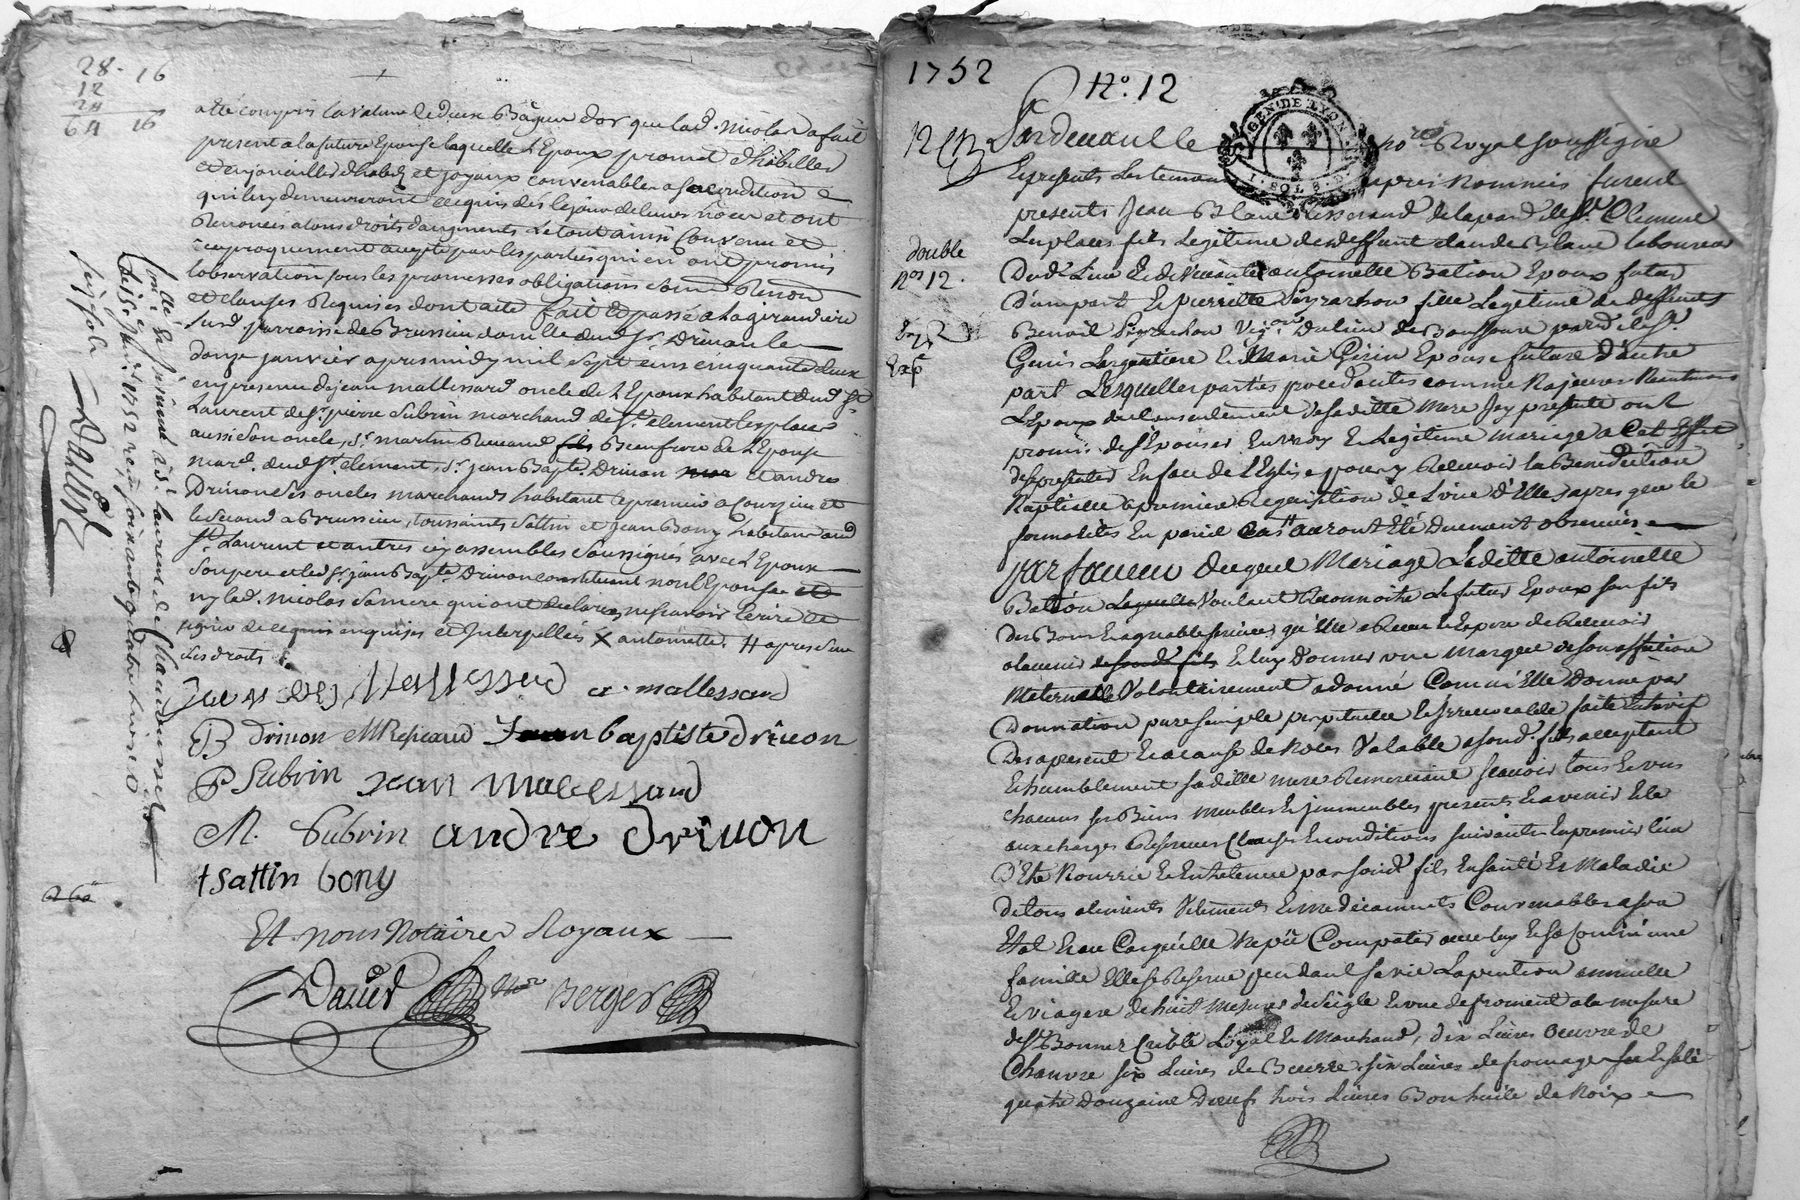 28. 16
12
24
64 16
a été compris la valeur de deux Bagues d'or que lad. Nicolas a fait
present a la future Epouse laquelle l'Epoux promet d'habiller
et enjoailler d'habits et joyaux convenables a sa condition
qui luy demeureront acquis des le jour de leurs nôces et ont
Renoncés a tous droits d'augments le tout ainsi Convenu et
reciproquement accepté par les parties qui en ont promis
l'observation sous les promesses obligations soum. Renon.
et clauses Requises dont acte fait et passé a la giraudiere
susd. parroisse de Brussieu domicille dud. Sr. Drivon le
douze janvier apres midy mil sept cens cinquante deux
en presence de jean mallessard oncle de l'Epoux habitant dud. St.
Laurent de Sr. pierre Subrin marchand de St. Clement les places
aussi son oncle, Sr. martin Recaud Beaufrere de l'Epouse
mard. dud. St. Clement, Sr. jean Bapte. Drivon et andré
Drivon ses oncles marchands habitant le premier a Courzieu et
le second a Brussieu, toussaints Sattin et jean Bony habitans aud.
St. Laurent et autres icy assemblés Soussignés avec l'Epoux
son pere et led. Sr. jean Bapte. Drivon constituant non l'Epouse
ny lad. Nicolas sa mere qui ont declarés ne sçavoir Ecrire ne
signer de ce enquises et Interpellés X antoinette. # apres
ses droits
a. mallessard
B Drivon Jean baptiste drivon
P Subrin Jean malessard
M. Subrin andre drivon
t Sattin bony
Et nous Notaires Royaux
Dauid Berger
Controllé et insinué a St. Laurent de Chamousset
1752 reçu soixante quatre livres
seize sols
Dauid
1752
N.o 12
GEN. DE LYON
1. SOL 8. D.
double
Nos 12.
Exp
Pardevant le nore. Royal soussigné
Et presents les temoins apres Nommés furent
presents Jean Blanc tisserand de la par. de St. Clement
Les places fils Legitime de deffunt Claude Blanc laboureur
Dud. Lieu et de vivante antoinette Bation Epoux futur
D'une part Et pierrette Peyrachon fille Legitime de deffunts
Benoit Peyrachon Vigon. Du lieu de Boussoure par. de St.
Genis L'argentiere Et Marie Girin Epouse future D'autre
part Lesquelles parties procedantes comme Majeures Neantmoins
L'Epoux du Consentement de sa ditte Mere Icy presente ont
promis de s'Epouser En vray Et Legitime mariage a Cet Effet
de se presenter En face de L'Eglise pour y Recevoir la Benediction
Nuptialle a la premiere Requisition de L'une d'Elles apres que les
formalités En pareil Cas auront Eté Duement observées
par faveur duquel Mariage Laditte antoinette
Bation Laquelle Voulant Reconnoitre Le futur Epoux son fils
Des Bons Et agreables services qu'Elle a Receu et Espere de Recevoir
a l'avenir Et luy Donner une marque de son affection
Maternelle Volontairement a donné Comm'Elle Donne par
Donnation pure simple perpetuelle Et Irrevocable faite Entrevifs
Des a present Et a cause de Noces Valable a sond. fils acceptant
Et humblement saditte mere Remerciant scavoir tous Et uns
chacuns ses Biens meubles Et Immeubles presents Et avenir Et ce
aux charges Reserves Clauses Et conditions suivantes En premier lieu
D'Etre Nourrie Et Entretenue par sond. fils En santé Et Maladie
De tous aliments Vetements Et medicaments Convenables a son
Etat Et au Cas qu'Elle ne put Compatir avec luy Et sa Commune
famille Elle se Reserve pendant sa vie La pention annuelle
Et viagere de huit Mesures de seigle Et une de froment a la mesure
de St. Bonnet Criblé Loyal Et Marchand, dix Livres oeuvre de
Chanvre six Livres de Beurre six Livres de fromage sec Et salé
quatre Douzaine D'oeufs trois Livres Bon huile de Noix